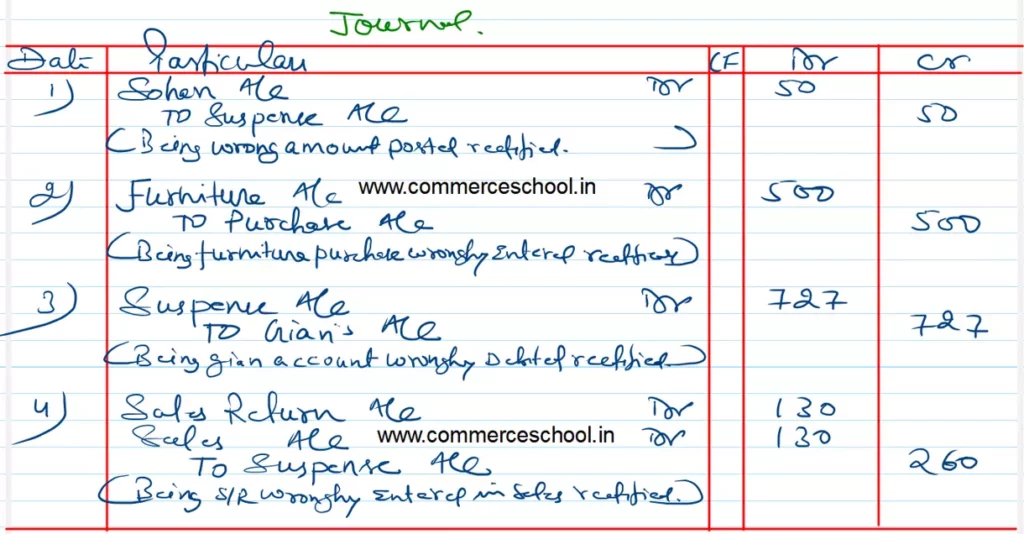 Journal.
Date Particulars CF Dr Cr
1) Sohan A/c Dr 50
To Suspense A/c 50
(Being wrong amount posted rectified.)
2) Furniture A/c www.commerceschool.in Dr 500
To Purchase A/c 500
(Being furniture purchase wrongly entered rectified)
3) Suspense A/c Dr 727
To Gian's A/c 727
(Being gian account wrongly Debited rectified)
4) Sales Return A/c Dr 130
Sales A/c www.commerceschool.in Dr 130
To Suspense A/c 260
(Being S/R wrongly entered in Sales rectified.)